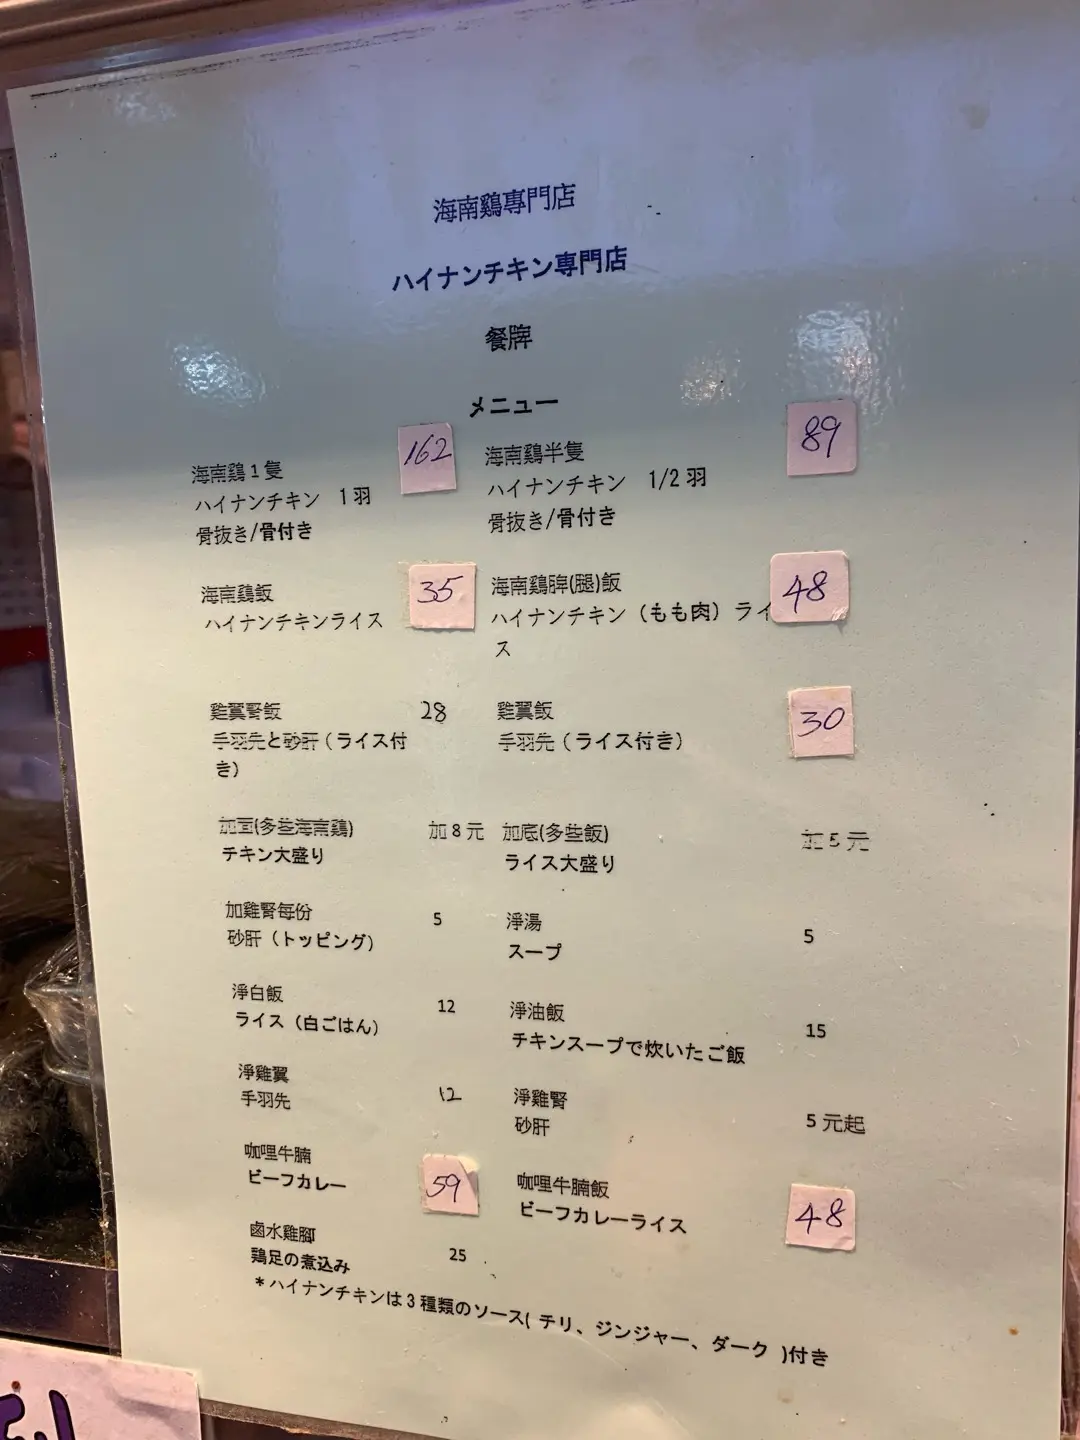 海南鷄專門店
ハイナンチキン専門店
餐牌
メニュー
海南鷄1隻 162
ハイナンチキン 1羽
骨抜き/骨付き
海南鷄半隻 89
ハイナンチキン 1/2羽
骨抜き/骨付き
海南鷄飯 35
ハイナンチキンライス
海南鷄脾(腿)飯 48
ハイナンチキン（もも肉）ライ
ス
雞翼腎飯 28
手羽先と砂肝（ライス付
き）
雞翼飯 30
手羽先（ライス付き）
加面(多些海南鷄) 加8元
チキン大盛り
加底(多些飯) 加5元
ライス大盛り
加雞腎每份 5
砂肝（トッピング）
淨湯 5
スープ
淨白飯 12
ライス（白ごはん）
淨油飯 15
チキンスープで炊いたご飯
淨雞翼 12
手羽先
淨雞腎 5元起
砂肝
咖哩牛腩 59
ビーフカレー
咖哩牛腩飯 48
ビーフカレーライス
鹵水雞腳 25
鶏足の煮込み
＊ハイナンチキンは3種類のソース( チリ、ジンジャー、ダーク )付き